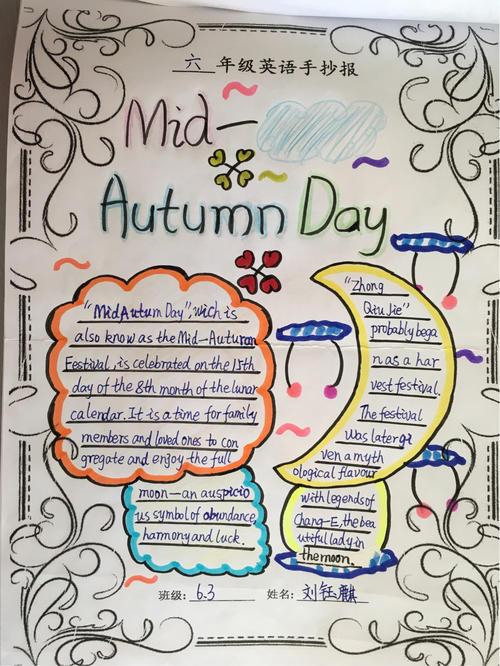 六 年级英语手抄报
Mid-
Autumn Day
"MidAutum Day", wich is
also know as the Mid-Autumn
Festival, is celebrated on the 15th
day of the 8th month of the lunar
calendar. It is a time for family
members and loved ones to con
gregate and enjoy the full
moon—an auspicio
us symbol of abundance,
harmony and luck.
"Zhong
Qiu Jie"
probably bega
n as a har
vest festival.
The festival
was later gi
ven a myth
ological flavour
with legends of
Chang-E, the bea
utiful lady in
the moon.
班级: 6.3 姓名: 刘钰麒